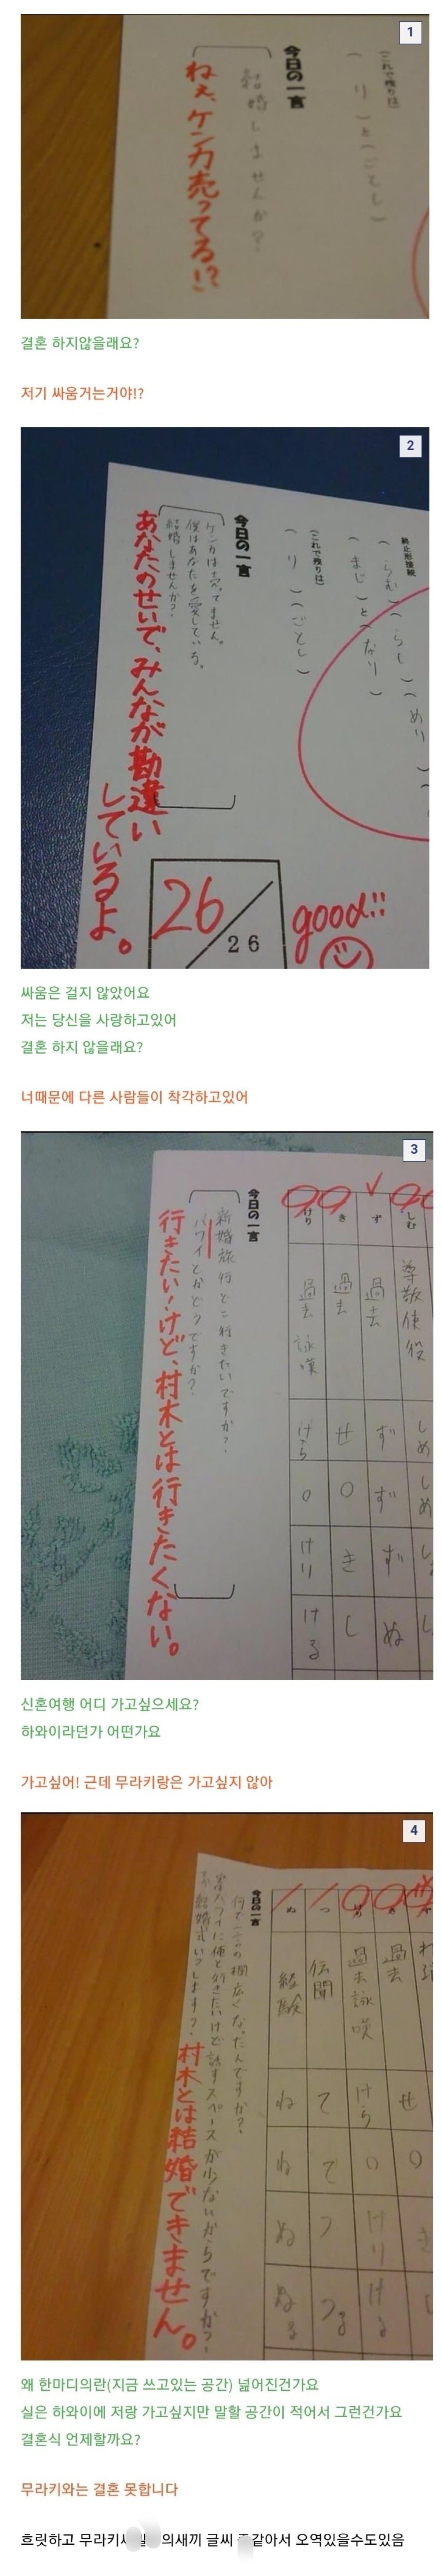 1
(これで残りは)
( り )と( ごとし )
今日の一言
結婚しませんか?
ねぇ、ケンカ売ってる!?
결혼 하지않을래요?
저기 싸움거는거야!?
2
終止形接続
( らむ )( らし )( めり )
( まじ )と( なり )
(これで残りは)
( り )( ごとし )
今日の一言
ケンカは売ってません。
僕はあなたを愛している。
結婚しませんか?
あなたのせいで、みんなが勘違い
しているよ。
26
26
good!!
싸움은 걸지 않았어요
저는 당신을 사랑하고있어
결혼 하지 않을래요?
너때문에 다른 사람들이 착각하고있어
3
しむ 尊敬 使役 しめ しめ
ず 過去 ず ず ず ぬ
き 過去 せ ○ き し
けり 過去 詠嘆 けら ○ けり ける
今日の一言
新婚旅行どこ行きたいですか?
ハワイとかどうですか?
行きたい!けど、村木とは行きたくない。
신혼여행 어디 가고싶으세요?
하와이라던가 어떤가요
가고싶어! 근데 무라키랑은 가고싶지 않아
4
過去 せ ○ き
過去 詠嘆 けら ○ けり ける
つ 伝聞 て て つ つる
ぬ 経験 ね ね ぬ ぬる
今日の一言
何で一言の欄広くなったんですか?
実はハワイに俺と行きたいけど話すスペースが少ないからですか?
結婚式いつします?
村木とは結婚できません。
왜 한마디의란(지금 쓰고있는 공간) 넓어진건가요
실은 하와이에 저랑 가고싶지만 말할 공간이 적어서 그런건가요
결혼식 언제할까요?
무라키와는 결혼 못합니다
흐릿하고 무라키 의새끼 글씨 같아서 오역있을수도있음